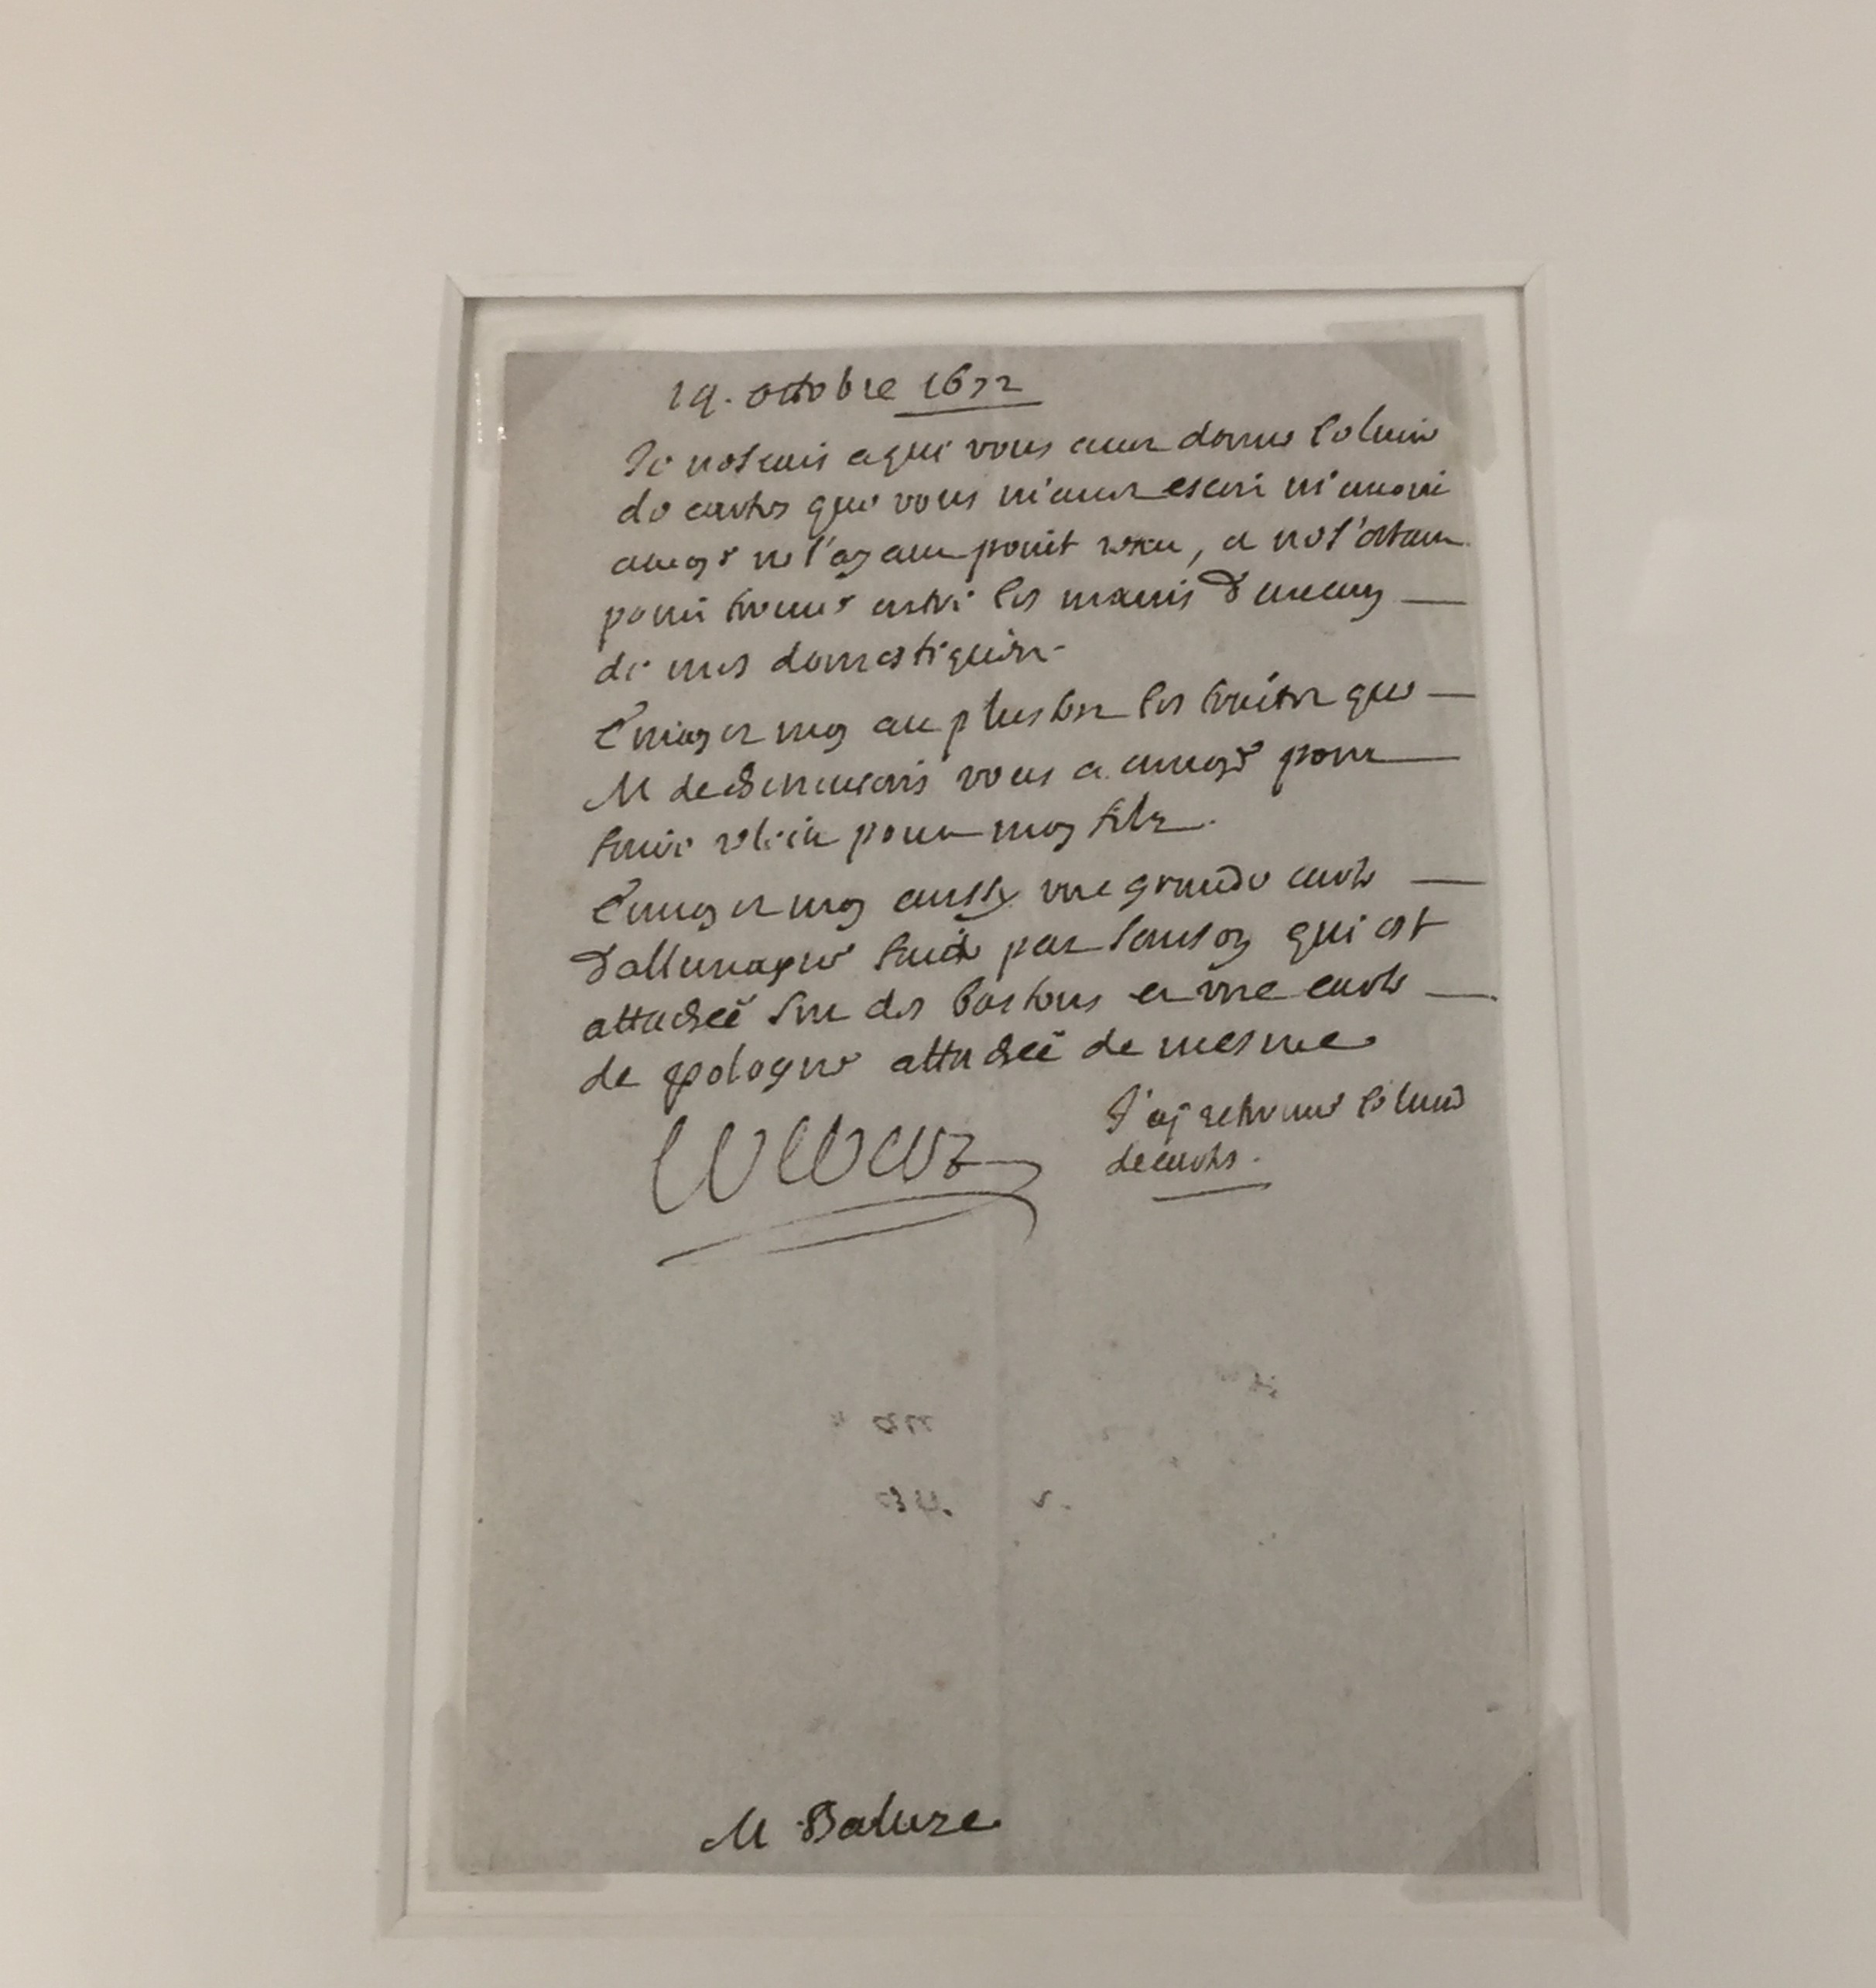 19. octobre 1672
Je ne scais a qui vous auez donné le liure
de cartes que vous m'auez escrit m'auoir
enuoyé ne l'ayant point receu, et ne s'estant
point trouué entre les mains d'aucun
de mes domestiques.
Enuoyez moy au plustost les traitez que
M de vous a enuoyé pour
faire relier pour mon fils.
Enuoyez moy aussy vne grande carte
d'allemagne faite par Sanson qui est
attachée sur des bastons et vne carte
de pologne attachée de mesme
J'ay retrouué le liure
de cartes.
M Baluze